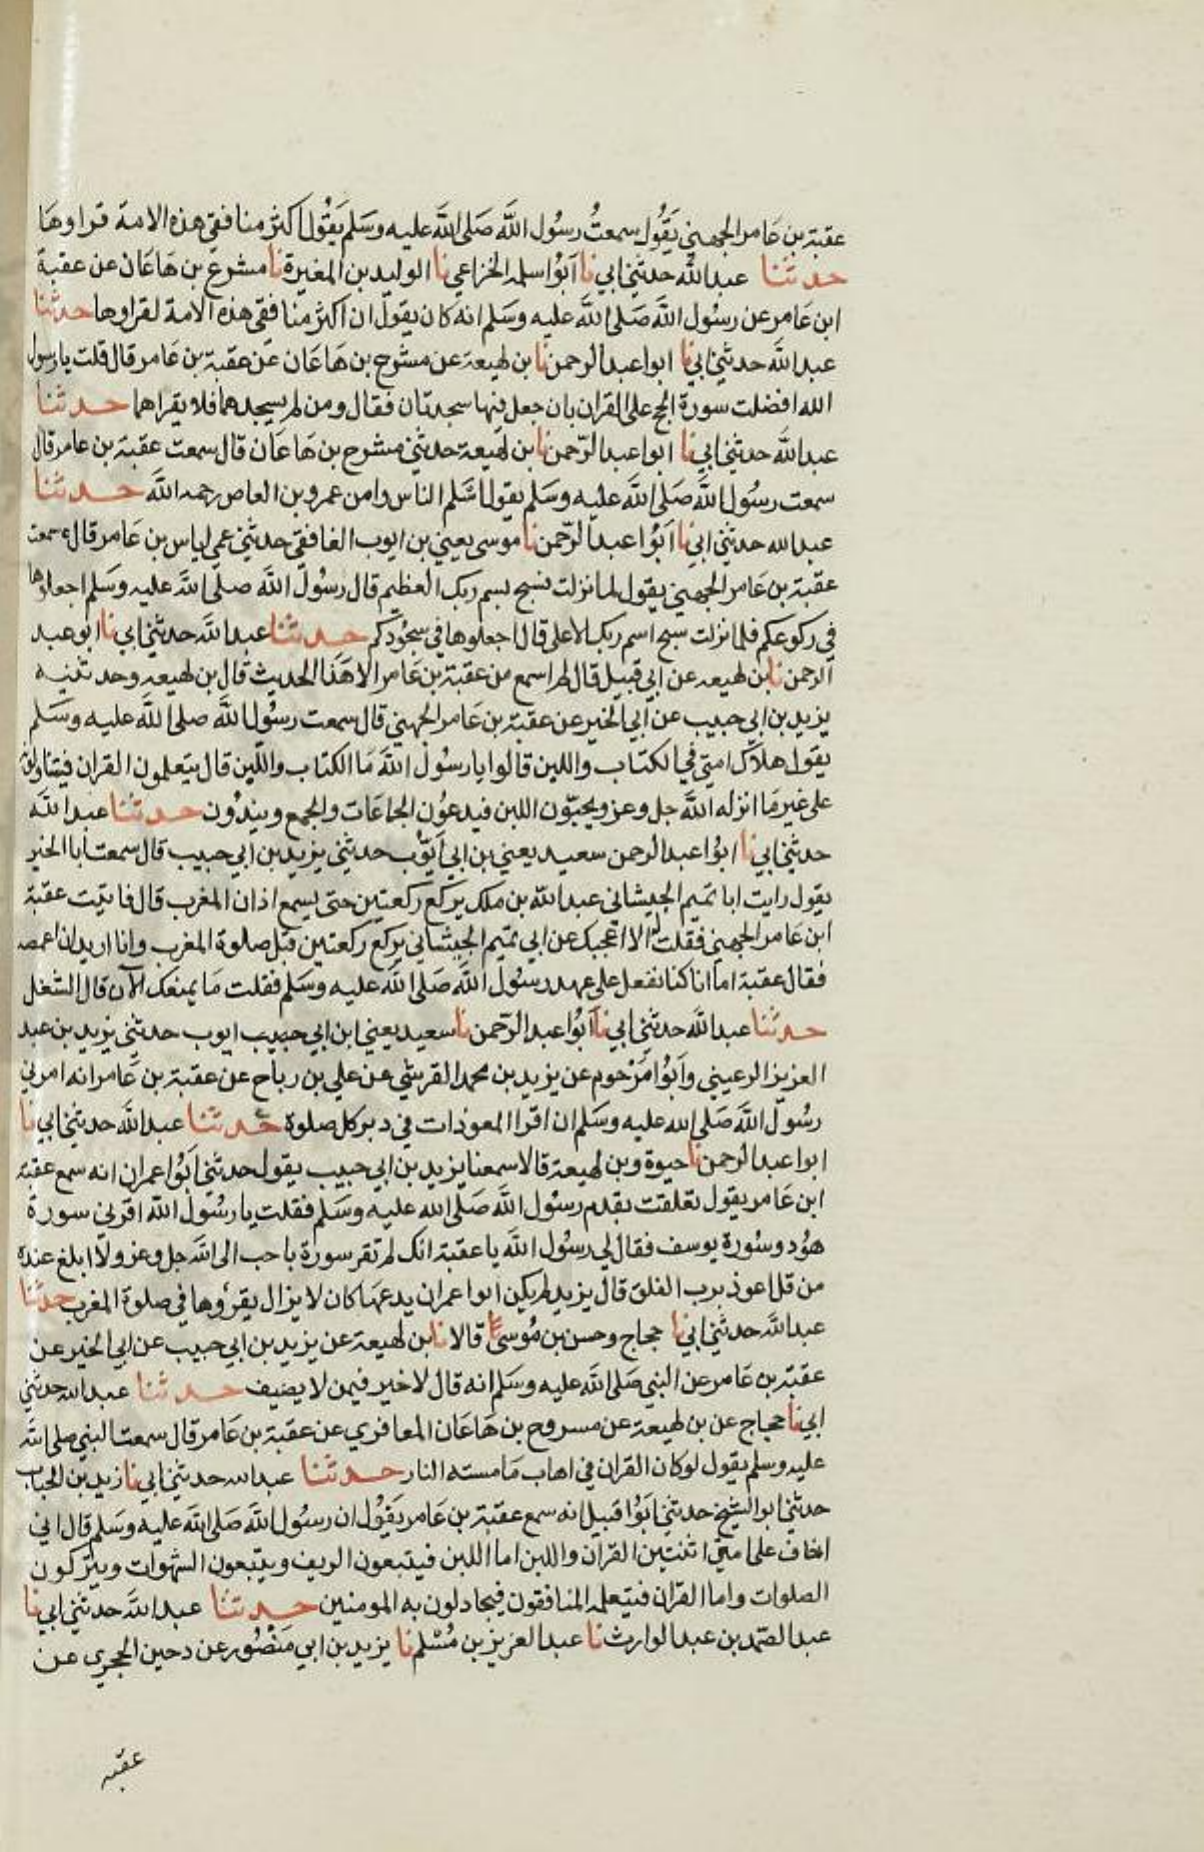 عقبة بن عامر الجهني يقول سمعت رسول الله صلى الله عليه وسلم يقول اكثر منافقي هذه الامة قراوها
حدثنا عبد الله حدثني ابي نا ابوا سلمه الخزاعي نا الوليد بن المغيرة نا مشرع بن هاعان عن عقبة
ابن عامر عن رسول الله صلى الله عليه وسلم انه كان يقول ان اكثر منافقي هذه الامة لقراوها حدثنا
عبد الله حدثني ابي نا ابوا عبد الرحمن نا بن لهيعة عن مشرح بن هاعان عن عقبة بن عامر قال قلت يا رسول
الله افضلت سورة الحج على القران بان جعل فيها سجدتان فقال ومن لم يسجدهما فلا يقراهما حدثنا
عبد الله حدثني ابي نا ابوا عبد الرحمن نا بن لهيعة حدثني مشرح بن هاعان قال سمعت عقبة بن عامر قال
سمعت رسول الله صلى الله عليه وسلم يقول اسلم الناس وامن عمرو بن العاص رحمه الله حدثنا
عبد الله حدثني ابي نا ابوا عبد الرحمن نا موسى يعني بن ايوب الغافقي حدثني عمي اياس بن عامر قال سمعت
عقبة بن عامر الجهني يقول لما نزلت فسبح بسم ربك العظيم قال رسول الله صلى الله عليه وسلم اجعلوها
في ركوعكم فلما نزلت سبح اسم ربك الاعلى قال اجعلوها في سجودكم حدثنا عبد الله حدثني ابي نا ابو عبد
الرحمن نا بن لهيعه عن ابي قبيل قال لم اسمع من عقبة بن عامر الا هذا الحديث قال بن لهيعه وحدثنيه
يزيد بن ابي حبيب عن ابي الخير عن عقبة بن عامر الجهني قال سمعت رسول الله صلى الله عليه وسلم
يقول هلاك امتي في الكتاب واللبن قالوا يا رسول الله ما الكتاب واللبن قال يتعلمون القران فيتاولونه
على غير ما انزله الله جل وعز ويحبون اللبن فيدعون الجماعات والجمع ويبدون حدثنا عبد الله
حدثني ابي نا ابوا عبد الرحمن سعيد يعني بن ابي ايوب حدثني يزيد بن ابي حبيب قال سمعت ابا الخير
يقول رايت ابا تميم الجيشاني عبد الله بن ملك يركع ركعتين حتى يسمع اذان المغرب قال فاتيت عقبة
ابن عامر الجهني فقلت له الا اعجبك عن ابي تميم الجيشاني يركع ركعتين قبل صلوة المغرب وانا اريد ان اغمصه
فقال عقبة اما انا كنا نفعل على عهد رسول الله صلى الله عليه وسلم فقلت ما يمنعك الان قال الشغل
حدثنا عبد الله حدثني ابي نا ابوا عبد الرحمن نا سعيد يعني ابن ابي حبيب ايوب حدثني يزيد بن عبد
العزيز الرعيني وابوا مرحوم عن يزيد بن محمد القرشي عن علي بن رباح عن عقبة بن عامر انه امرني
رسول الله صلى الله عليه وسلم ان اقرا المعوذات في دبر كل صلوة حدثنا عبد الله حدثني ابي نا
ابوا عبد الرحمن نا حيوة وبن لهيعة قالا سمعنا يزيد بن ابي حبيب يقول حدثني ابوا عمران انه سمع عقبة
ابن عامر يقول تعلقت بقدم رسول الله صلى الله عليه وسلم فقلت يا رسول الله اقرني سورة
هود وسورة يوسف فقال لي رسول الله يا عقبة انك لم تقر سورة باحب الى الله جل وعز ولا ابلغ عنده
من قل اعوذ برب الفلق قال يزيد لم يكن ابوا عمران يدعها كان لا يزال يقرؤها في صلوة المغرب حدثنا
عبد الله حدثني ابي نا حجاج وحسن بن موسى قالا نا بن لهيعة عن يزيد بن ابي حبيب عن ابي الخير عن
عقبة بن عامر عن النبي صلى الله عليه وسلم انه قال لا خير فيمن لا يضيف حدثنا عبد الله حدثني
ابي نا حجاج عن بن لهيعة عن مسروح بن هاعان المعافري عن عقبة بن عامر قال سمعت النبي صلى الله
عليه وسلم يقول لو كان القران في اهاب ما مسته النار حدثنا عبد الله حدثني ابي نا زيد بن الحباب
حدثني ابو الشيخ حدثني ابوا قبيل انه سمع عقبة بن عامر يقول ان رسول الله صلى الله عليه وسلم قال اني
اخاف على امتي اثنتين القران واللبن اما اللبن فيتبعون الريف ويتبعون الشهوات ويتركون
الصلوات واما القران فيتعلمه المنافقون فيجادلون به المومنين حدثنا عبد الله حدثني ابي نا
عبد الصمد بن عبد الوارث نا عبد العزيز بن مسلم نا يزيد بن ابي منصور عن دحين الحجري عن
عقبه